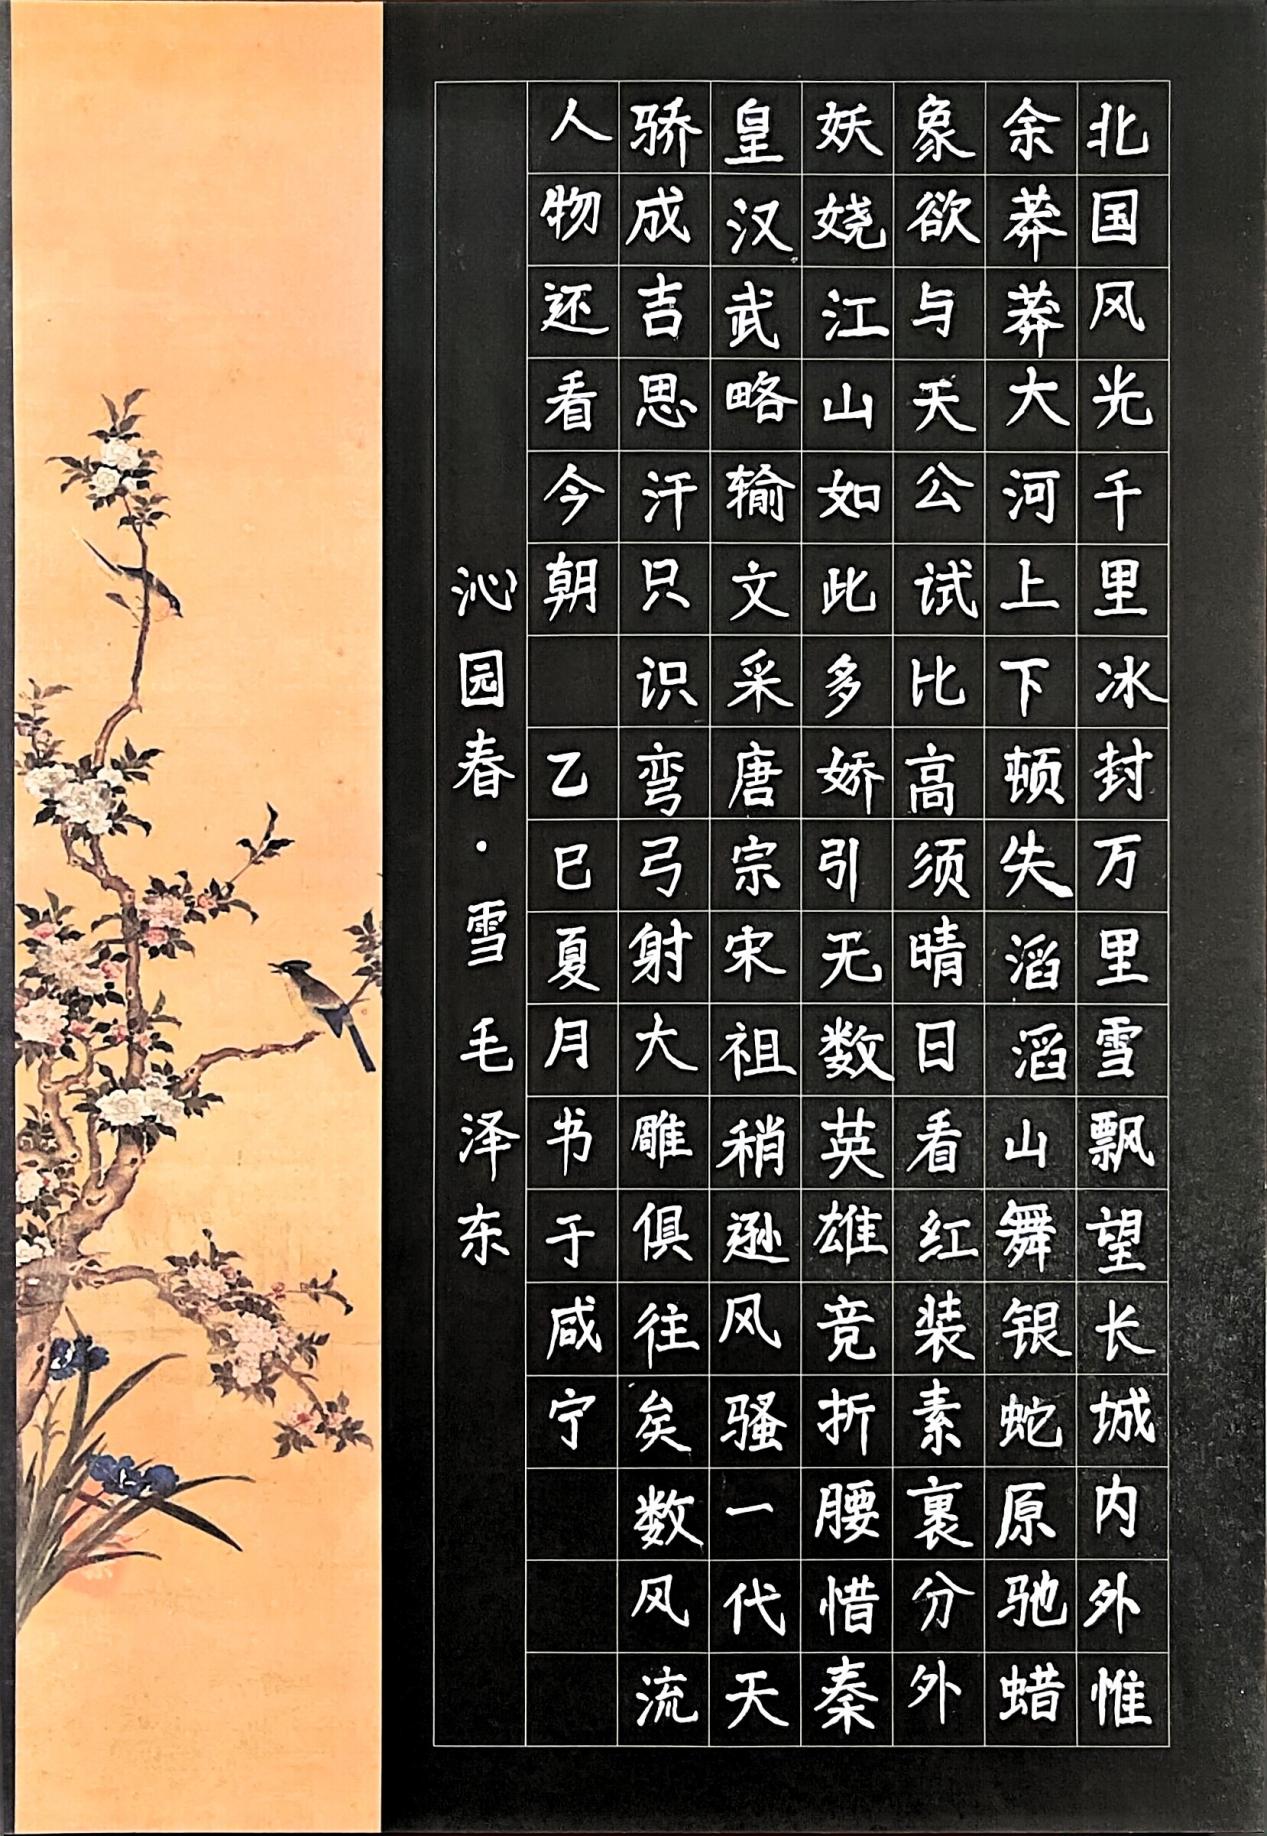 北国风光千里冰封万里雪飘望长城内外惟
余莽莽大河上下顿失滔滔山舞银蛇原驰蜡
象欲与天公试比高须晴日看红装素裹分外
妖娆江山如此多娇引无数英雄竞折腰惜秦
皇汉武略输文采唐宗宋祖稍逊风骚一代天
骄成吉思汗只识弯弓射大雕俱往矣数风流
人物还看今朝 乙巳夏月书于咸宁
沁园春·雪 毛泽东